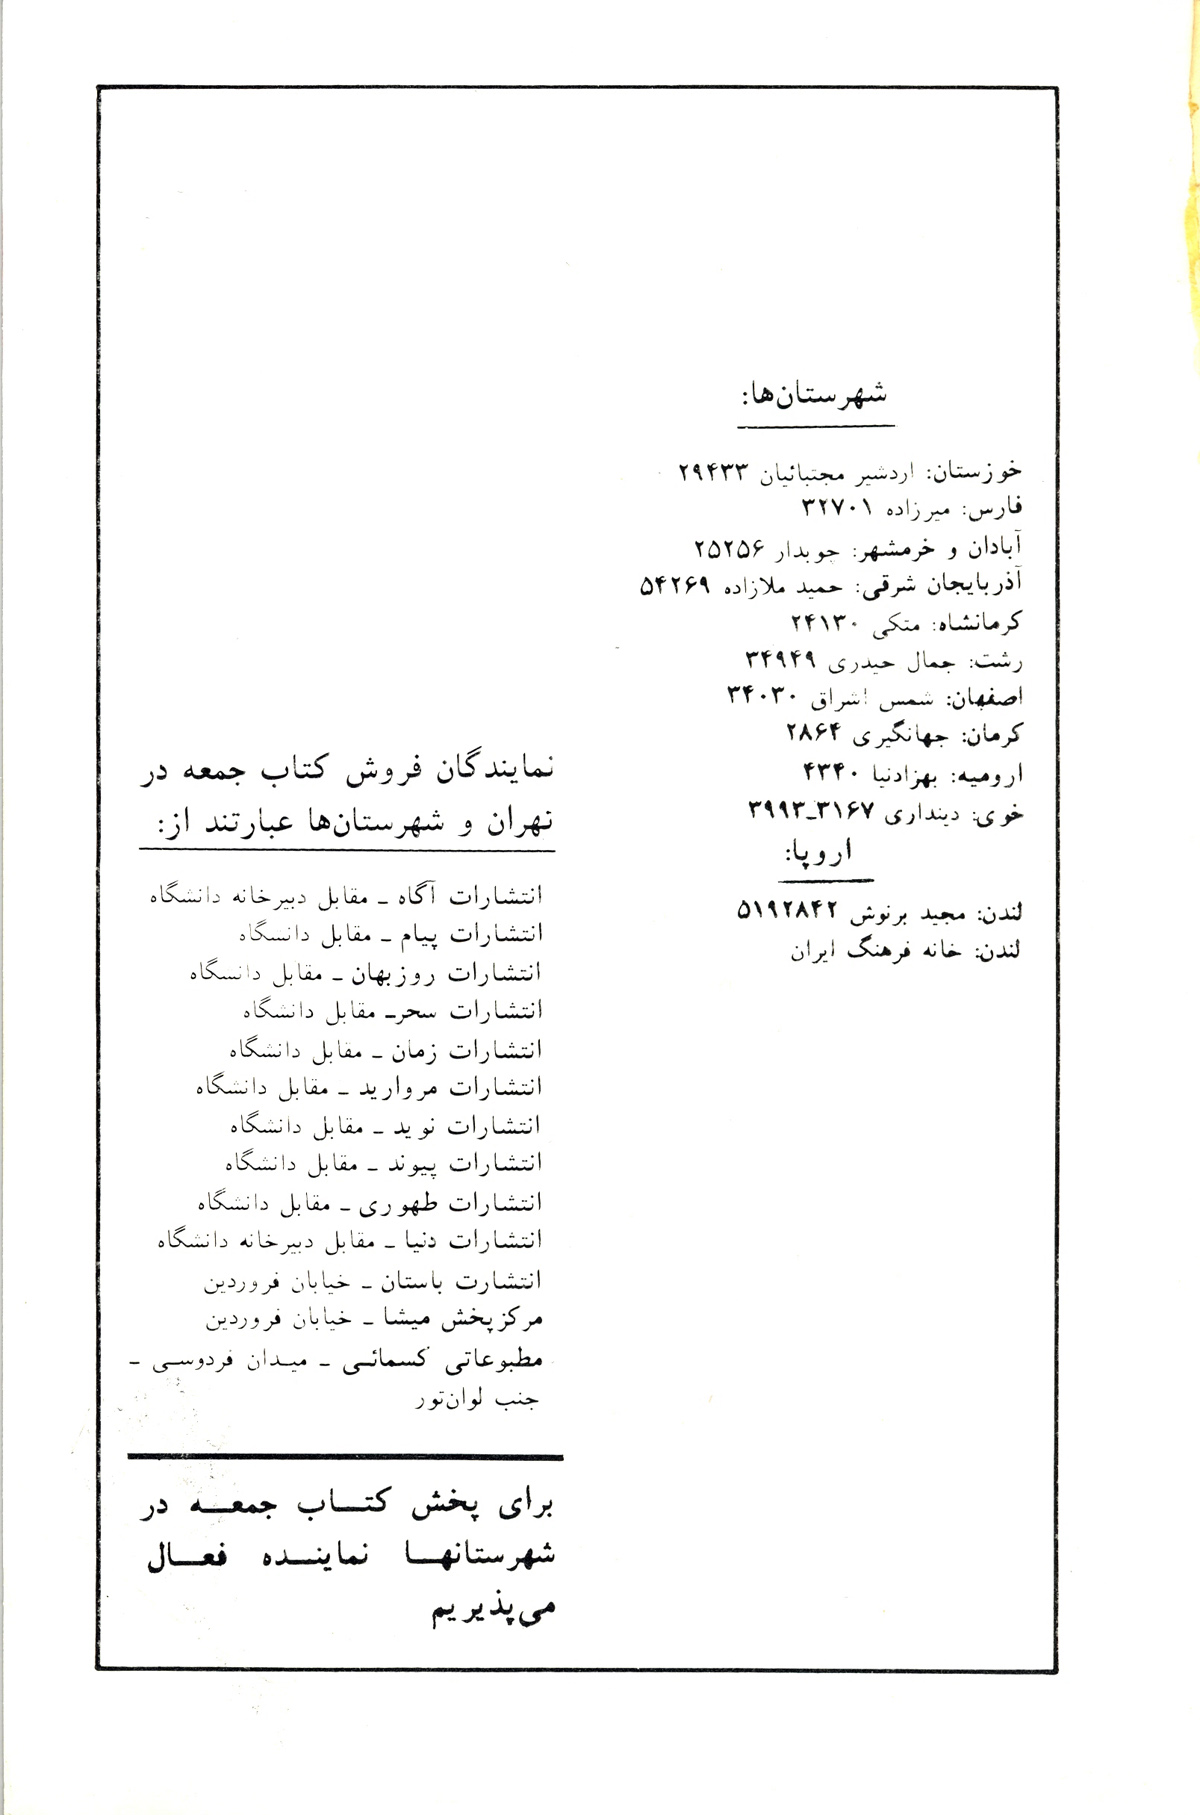 شهرستان‌ها:
خوزستان: اردشیر مجتبائیان ۲۹۴۳۳
فارس: میرزاده ۳۲۷۰۱
آبادان و خرمشهر: جوبدار ۲۵۲۵۶
آذربایجان شرقی: حمید ملازاده ۵۴۲۶۹
کرمانشاه: متکی ۲۴۱۳۰
رشت: جمال حیدری ۳۴۹۴۹
اصفهان: شمس اشراق ۳۴۰۳۰
کرمان: جهانگیری ۲۸۶۴
ارومیه: بهزادنیا ۴۳۴۰
خوی: دینداری ۳۱۶۷-۳۹۹۳
اروپا:
لندن: مجید برنوش ۵۱۹۲۸۴۲
لندن: خانه فرهنگ ایران
نمایندگان فروش کتاب جمعه در
تهران و شهرستان‌ها عبارتند از:
انتشارات آگاه ـ مقابل دبیرخانه دانشگاه
انتشارات پیام ـ مقابل دانشگاه
انتشارات روزبهان ـ مقابل دانشگاه
انتشارات سحرـ مقابل دانشگاه
انتشارات زمان ـ مقابل دانشگاه
انتشارات مروارید ـ مقابل دانشگاه
انتشارات نوید ـ مقابل دانشگاه
انتشارات پیوند ـ مقابل دانشگاه
انتشارات طهوری ـ مقابل دانشگاه
انتشارات دنیا ـ مقابل دبیرخانه دانشگاه
انتشارت باستان ـ خیابان فروردین
مرکزپخش میشا ـ خیابان فروردین
مطبوعاتی کسمائـی ـ میـدان فردوسـی ـ
جنب لوان‌تور
برای پخش کتـــاب جمعـــه در
شهرستانهـــا نماینـــده فعـــال
می‌پذیریم